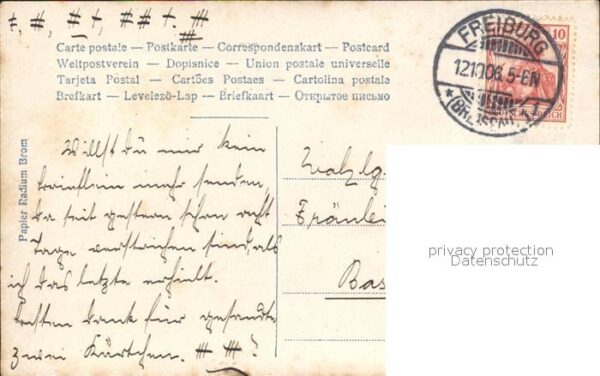 Carte postale — Postkarte — Correspondenzkart — Postcard
Weltpostverein — Dopisnice — Union postale universelle
Tarjeta Postal — Cartões Postaes — Cartolina postale
Brefkort — Levelező-Lap — Briefkaart — Открытое письмо
FREIBURG
12.10.06. 5-6N.
* (BREISGAU) 1.
10
REICH
Papier Radium Brom
Willst du mir kein
brieflein mehr senden,
da seit gestern schon acht
Tage verstrichen sind, als
ich das letzte erhielt.
besten dank für gesandte
zwei Kärtchen. ?
Fräulei
Bas
privacy protection
Datenschutz